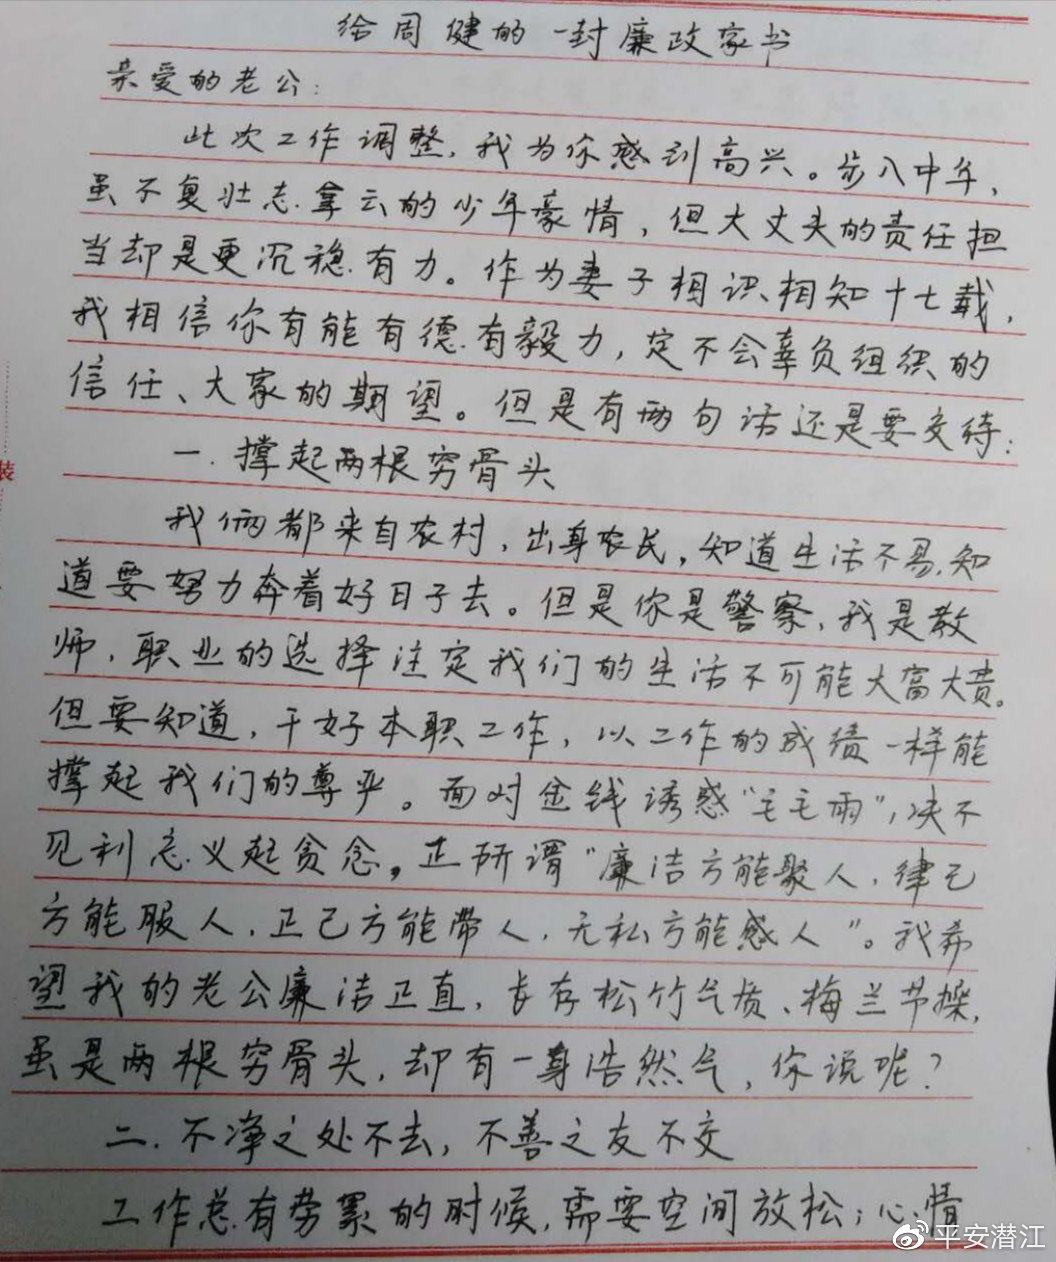 给周健的一封廉政家书
亲爱的老公:
此次工作调整,我为你感到高兴。步入中年,
虽不复壮志拿云的少年豪情,但大丈夫的责任担
当却是更沉稳有力。作为妻子相识相知十七载,
我相信你有能有德有毅力,定不会辜负组织的
信任、大家的期望。但是有两句话还是要交待:
一.撑起两根穷骨头
我俩都来自农村,出身农民,知道生活不易,知
道要努力奔着好日子去。但是你是警察,我是教
师,职业的选择注定我们的生活不可能大富大贵。
但要知道,干好本职工作,以工作的成绩一样能
撑起我们的尊严。面对金钱诱惑“毛毛雨”,决不
见利忘义起贪念。正所谓“廉洁方能聚人,律己
方能服人,正己方能带人,无私方能感人”。我希
望我的老公廉洁正直,长存松竹气质、梅兰节操,
虽是两根穷骨头,却有一身浩然气,你说呢?
二.不净之处不去,不善之友不交
工作总有劳累的时候,需要空间放松;心情
装
平安潜江